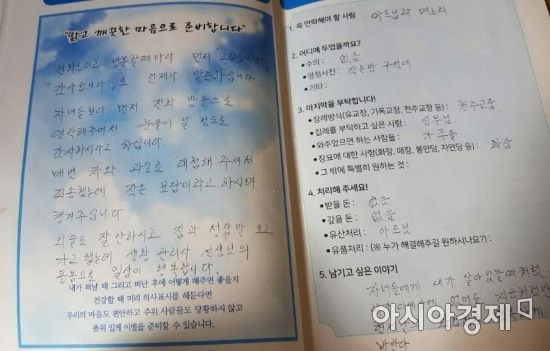 "맑고 깨끗한 마음으로 준비합니다"
전화드리고 방문할때마다 먼저 "고맙습니다"
"감사합니다"로 언제나 맞으십니다.
자녀들보다 먼저 전화 방문으로
연락해주어서 눈물이 날 정도로
감사하시다고 하십니다.
매번 차와 과일로 대접해 주셔서
죄송했는데 작은 보답이라고 하시며
챙겨주십니다.
외출도 잘 안하시고 집과 성당만 오고
가고 했는데 생활 관리사 선생님의
방문으로 일상이 행복합니다.
내가 떠날 때 그리고 떠난 후에 어떻게 해주면 좋을지
건강할 때 미리 의사표시를 해둔다면
우리의 마음도 편안하고 주위 사람들도 당황하지 않고
품위 있게 이별을 준비할 수 있습니다.
1. 꼭 연락해야 할 사람 아드님과 며느리
2. 어디에 두었을까요?
• 수의 : 없음
• 영정사진 : 작은방 구석에
• 기타 :
3. 마지막을 부탁합니다!
• 장례방식(유교장, 기독교장, 천주교장 등) : 천주교장
• 집례를 부탁하고 싶은 사람 : 신부님
• 와주었으면 하는 사람들 : 가족들
• 장묘에 대한 사항(화장, 매장, 봉안당, 자연장 등) : 화장
• 그 밖에 특별히 원하는 것 :
4. 처리해 주세요!
• 받을 돈 : 없음
• 갚을 돈 : 없음
• 유산처리 : 아드님
• 유품처리 : (※ 누가 해결해주길 원하시나요?) :
5. 남기고 싶은 이야기
자녀들에게 내가 살아있을때처럼
바란다
아시아경제